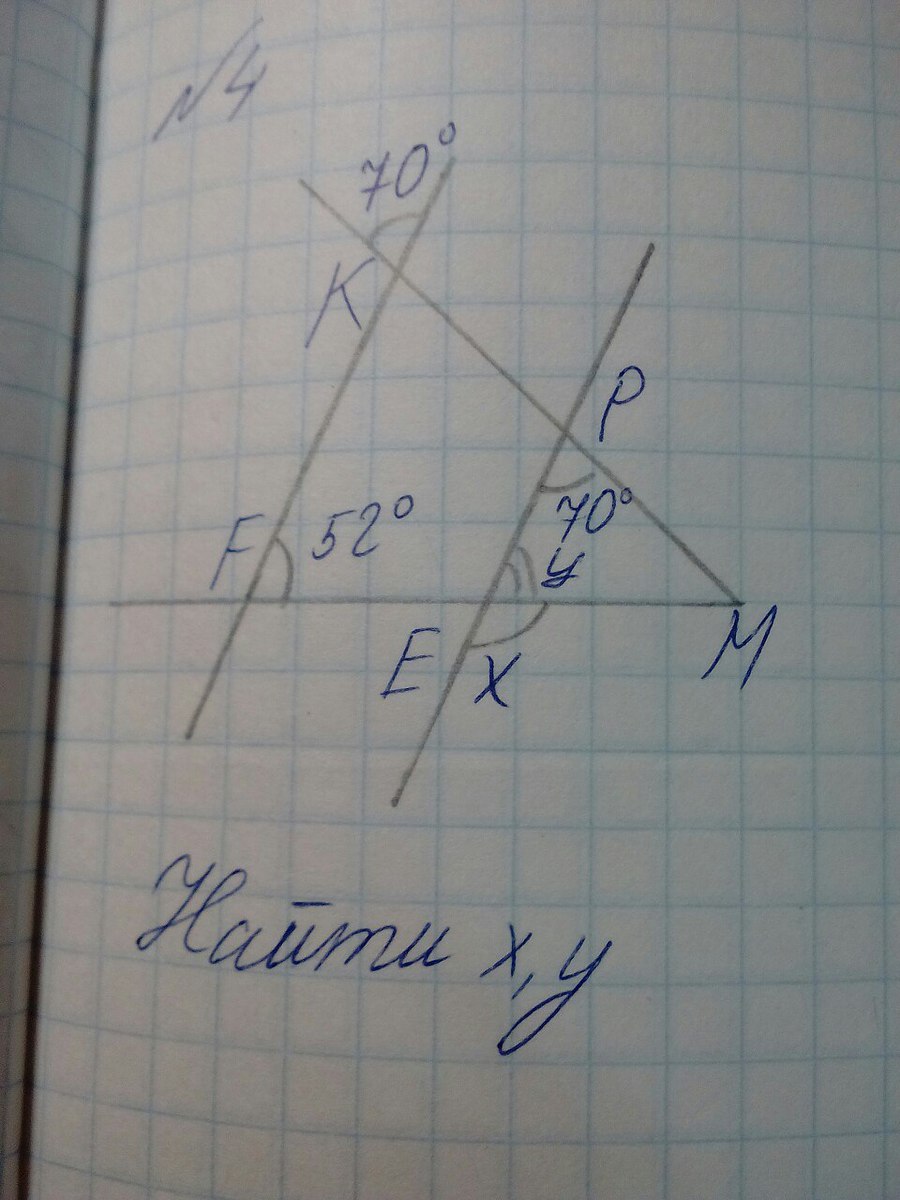 №4
70°
K
P
70°
F 52°
y
E x M
Найти x, y